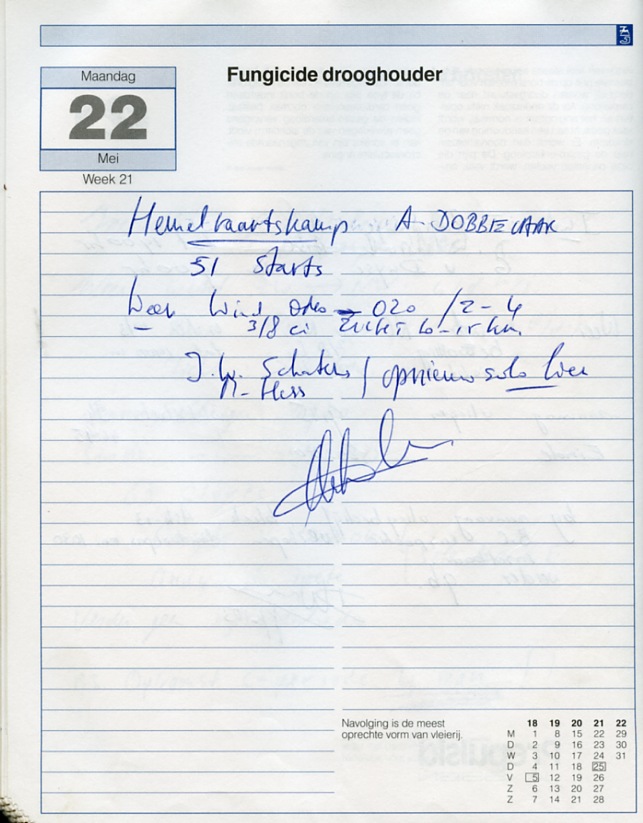 Maandag
22
Mei
Week 21
Fungicide drooghouder
Hemelvaartskamp A. DOBBELAAR
51 Starts
Weer Wind 020 / 2-4
3/8 ci Zicht 10-15 km
J.W. Schuten / opnieuw solo hier
M. Hess
Navolging is de meest
oprechte vorm van vleierij.
18 19 20 21 22
M 1 8 15 22 29
D 2 9 16 23 30
W 3 10 17 24 31
D 4 11 18 25
V 5 12 19 26
Z 6 13 20 27
Z 7 14 21 28